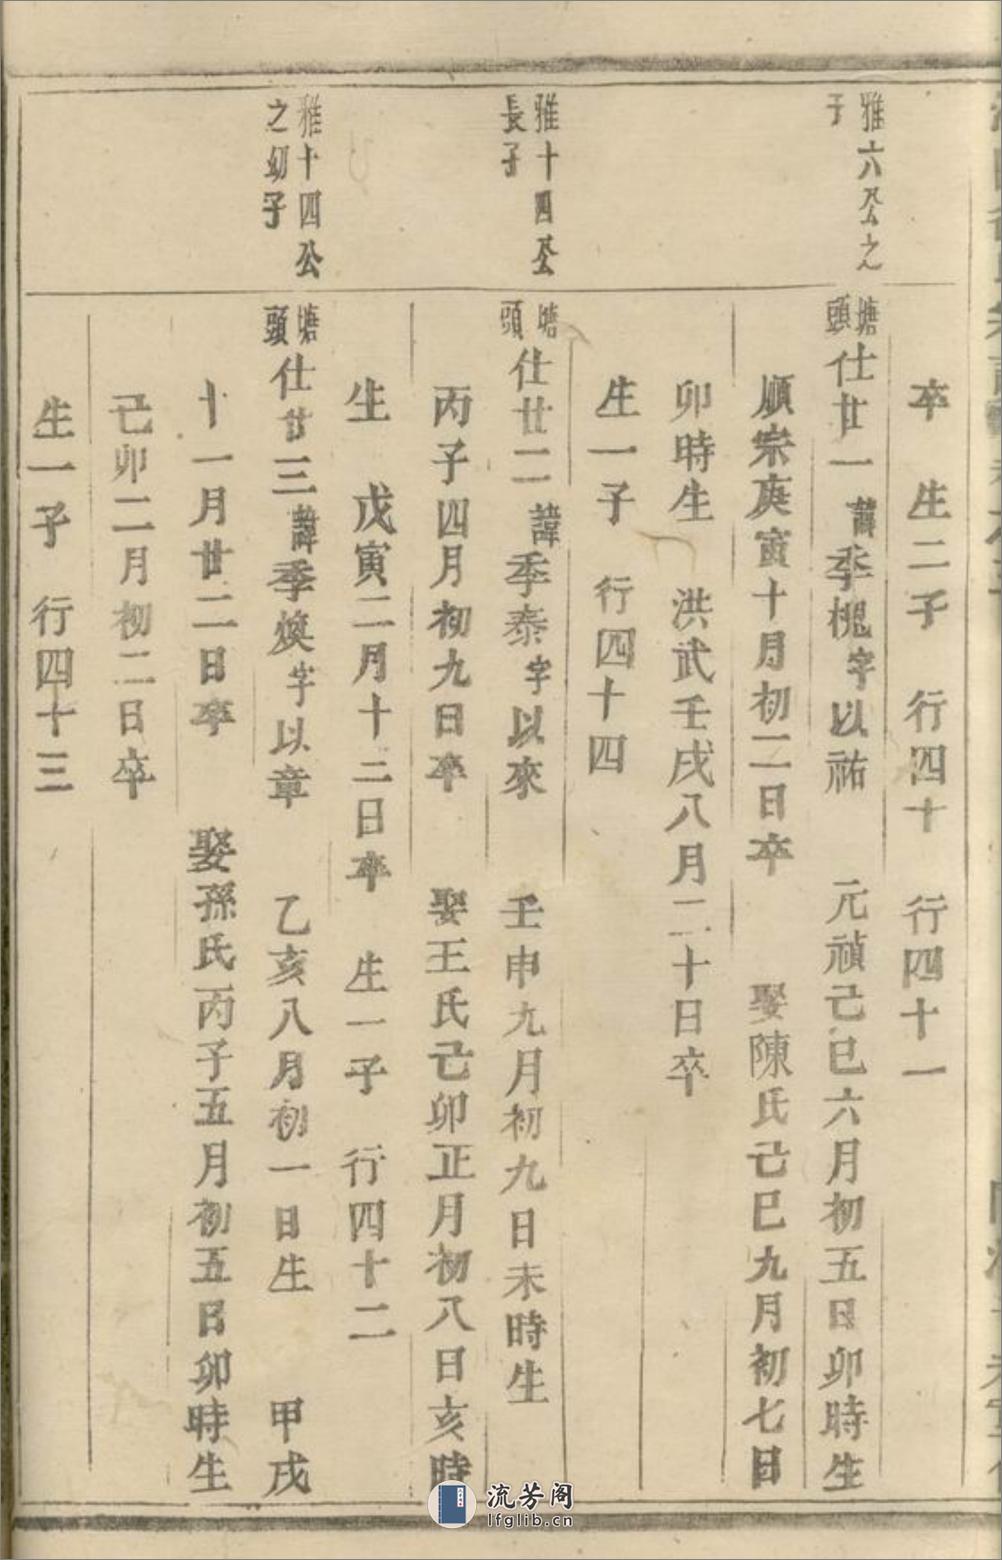 卒　生二子　行四十　行四十一
雅六公之
子
塘頭仕廿一諱季槐字以祐　元禎己巳六月初五日卯時生
順宗庚寅十月初二日卒　娶陳氏己巳九月初七日
卯時生　洪武壬戌八月二十日卒
生一子　行四十四
雅十四公
長子
塘頭仕廿二諱季泰字以來　壬申九月初九日未時生
丙子四月初九日卒　娶王氏己卯正月初八日亥時
生　戊寅二月十二日卒　生一子　行四十二
雅十四公
之幼子
塘頭仕廿三諱季煥字以章　乙亥八月初一日生　甲戌
十一月廿二日卒　娶孫氏丙子五月初五日卯時生
己卯二月初二日卒
生一子　行四十三
流芳阁
lfglib.cn